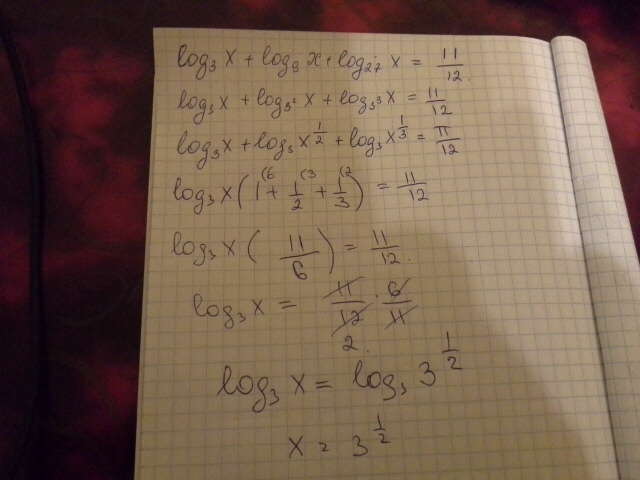 log₃ x + log₉ x + log₂₇ x = 11/12.
log₃ x + log₃² x + log₃³ x = 11/12
log₃ x + log₃ x^(1/2) + log₃ x^(1/3) = 11/12
log₃ x (1⁽⁶ + 1⁽³/2 + 1⁽²/3) = 11/12
log₃ x (11/6) = 11/12.
log₃ x = 11/12 · 6/11
2.
log₃ x = log₃ 3^(1/2)
x = 3^(1/2)